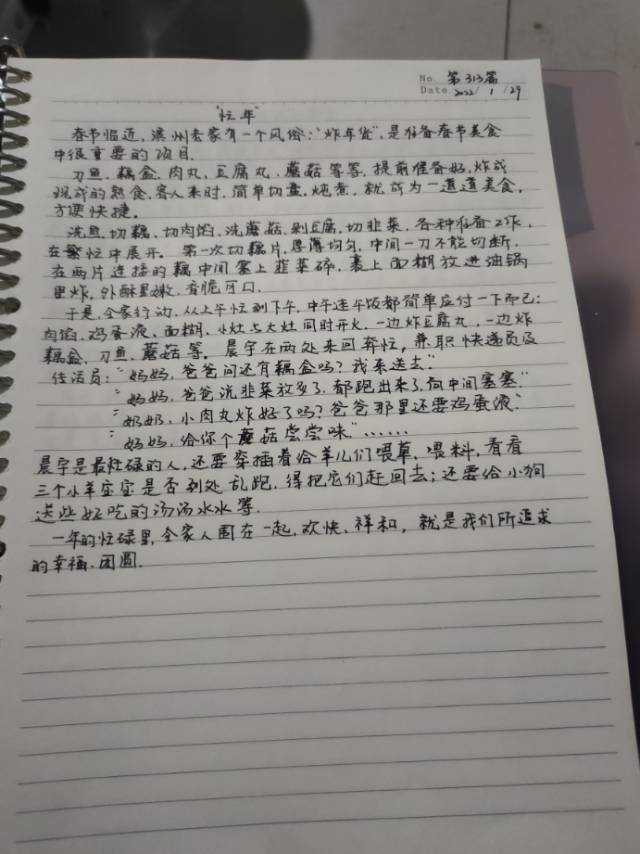 No. 第313篇
Date. 2022/ 1 /29
"忙年"
春节临近,滨州老家有一个风俗:"炸年货",是准备春节美食
中很重要的项目.
刀鱼、藕盒、肉丸、豆腐丸、蘑菇等等,提前准备好,炸成
现成的熟食,客人来时,简单切盘,炖煮,就成为一道道美食,
方便快捷。
洗鱼,切藕,切肉馅,洗蘑菇,剁豆腐,切韭菜,各种准备工作,
在繁忙中展开。第一次切藕片,厚薄均匀,中间一刀不能切断,
在两片连接的藕中间塞上韭菜碎,裹上面糊放进油锅
里炸,外酥里嫩,香脆可口.
于是,全家行动,从上午忙到下午,中午连午饭都简单应付一下而已:
肉馅,鸡蛋液、面糊,小灶与大灶同时开火,一边炸豆腐丸,一边炸
藕盒、刀鱼、蘑菇等。晨宇在两处来回奔忙,兼职快递员及
传话员:"妈妈,爸爸问还有藕盒吗?我来送去."
"妈妈,爸爸说韭菜放多了,都跑出来了,向中间塞塞."
"奶奶,小肉丸炸好了吗?爸爸那里还要鸡蛋液."
"妈妈,给你个蘑菇尝尝味"……
晨宇是最忙碌的人,还要穿插着给羊儿们喂草,喂料,看看
三个小羊宝宝是否到处乱跑,得把它们赶回去;还要给小狗
送些好吃的汤汤水水等.
一年的忙碌里,全家人围在一起,欢快、祥和,就是我们所追求
的幸福、团圆.